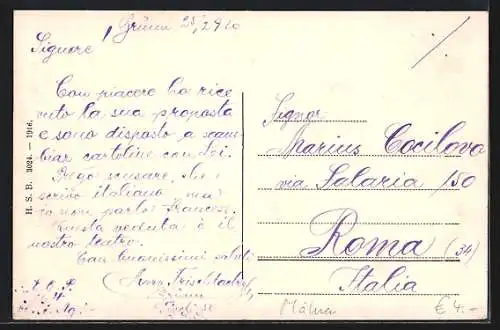 Brünn 25/2920
Signore
Con piacere ho rice
vuto la sua proposta
e sono disposto a scam
biar cartoline con Lei.
Prego scusare, che
scrivo italiano ma
io non parlo Francese.
Questa veduta è il
nostro teatro.
Con buonissimi saluti
Brünn
H. S. B. 3024. — 1916.
Signor
Marius Cocilovo
via Salaria 150
Roma (34)
Italia
€ 4.-